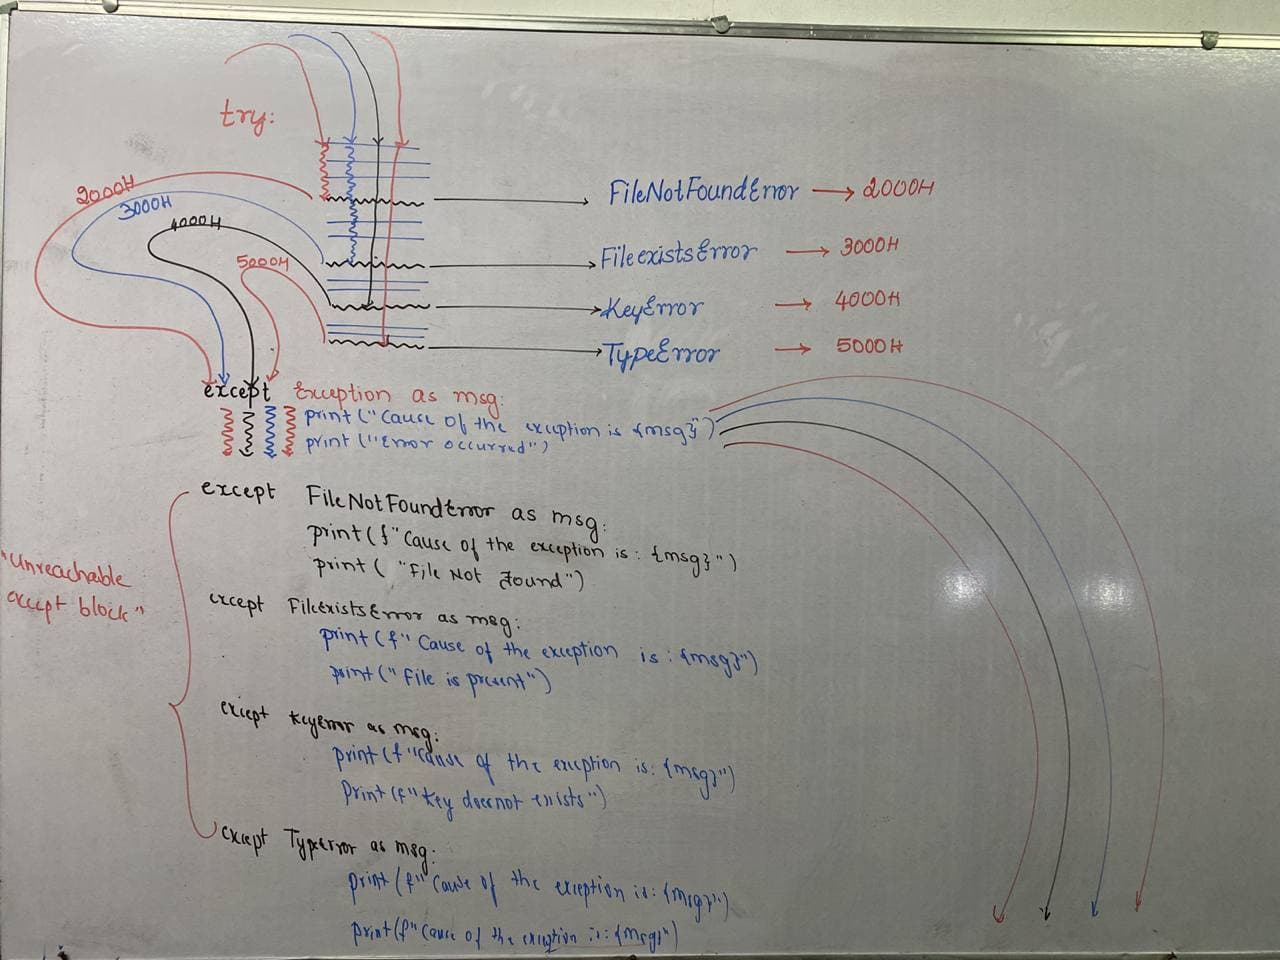 try:
2000H
3000H
4000H
5000H
FileNotFoundError → 2000H
FileexistsError → 3000H
KeyError → 4000H
TypeError → 5000H
except Exception as msg:
print("Cause of the exception is {msg}")
print("Error occurred")
except FileNotFoundError as msg:
print(f"Cause of the exception is: {msg}")
print( "File Not found")
except FileexistsError as msg:
print(f" Cause of the exception is: {msg}")
print(" File is present")
except KeyError as msg:
print(f"Cause of the exception is: {msg}")
print(f"Key doesnot exists")
except TypeError as msg:
print(f" Cause of the exception is: {msg}")
print(f"Cause of the exception is: {msg}")
"Unreachable
except block"